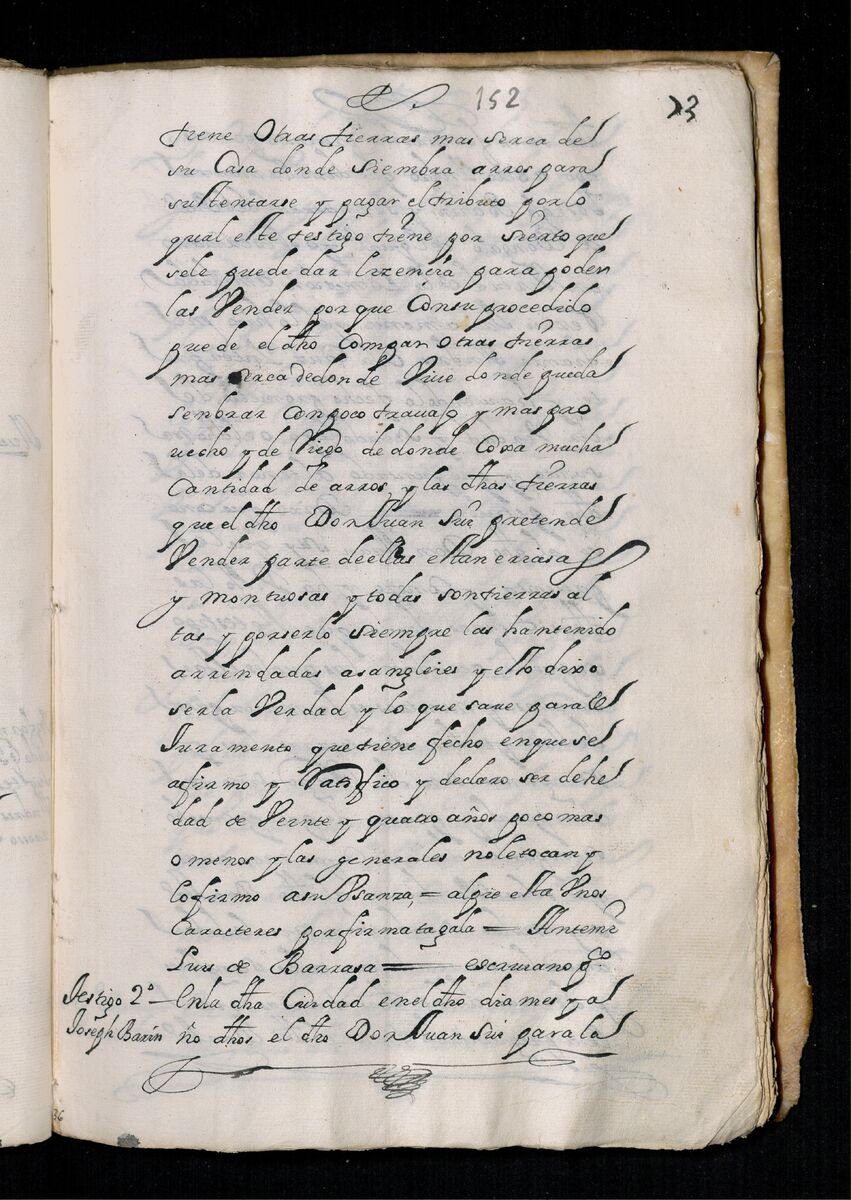 152
23
tiene Otras tierras mas serca de
su Casa donde siembra arros para
sustentarse y pagar el tributo por lo
qual este testigo tiene por sierto que
se le puede dar lizencia para poder
las Vender por que Con su procedido
puede el dho Compar Otras tierras
mas serca de donde Vive donde pueda
senbrar Con poco travajo y mas pro
uecho y de Riego de donde Coxa mucha
Cantidad de arros y las dhas tierras
que el dho Don Juan Sui pretende
Vender parte de ellas estan eriasas
y montuosas y todas son tierras al
tas y por serlo siempre las han tenido
arrendadas a sangleies y esto dixo
ser la Verdad y lo que save para el
Juramento que tiene fecho en que se
afirmo y Ratifico y declaro ser de he
dad de Veinte y quatro años poco mas
o menos y las generales no le tocan y
lo firmo a su Vsanza = al pie esta Vnos
Caracteres por firma tagala = Antemi
Luis de Barrasa = escriuano pco
Testigo 2º
Joseph Barin
En la dha Ciudad en el dho dia mes y a
ño dhos el dho Don Juan Sui para la